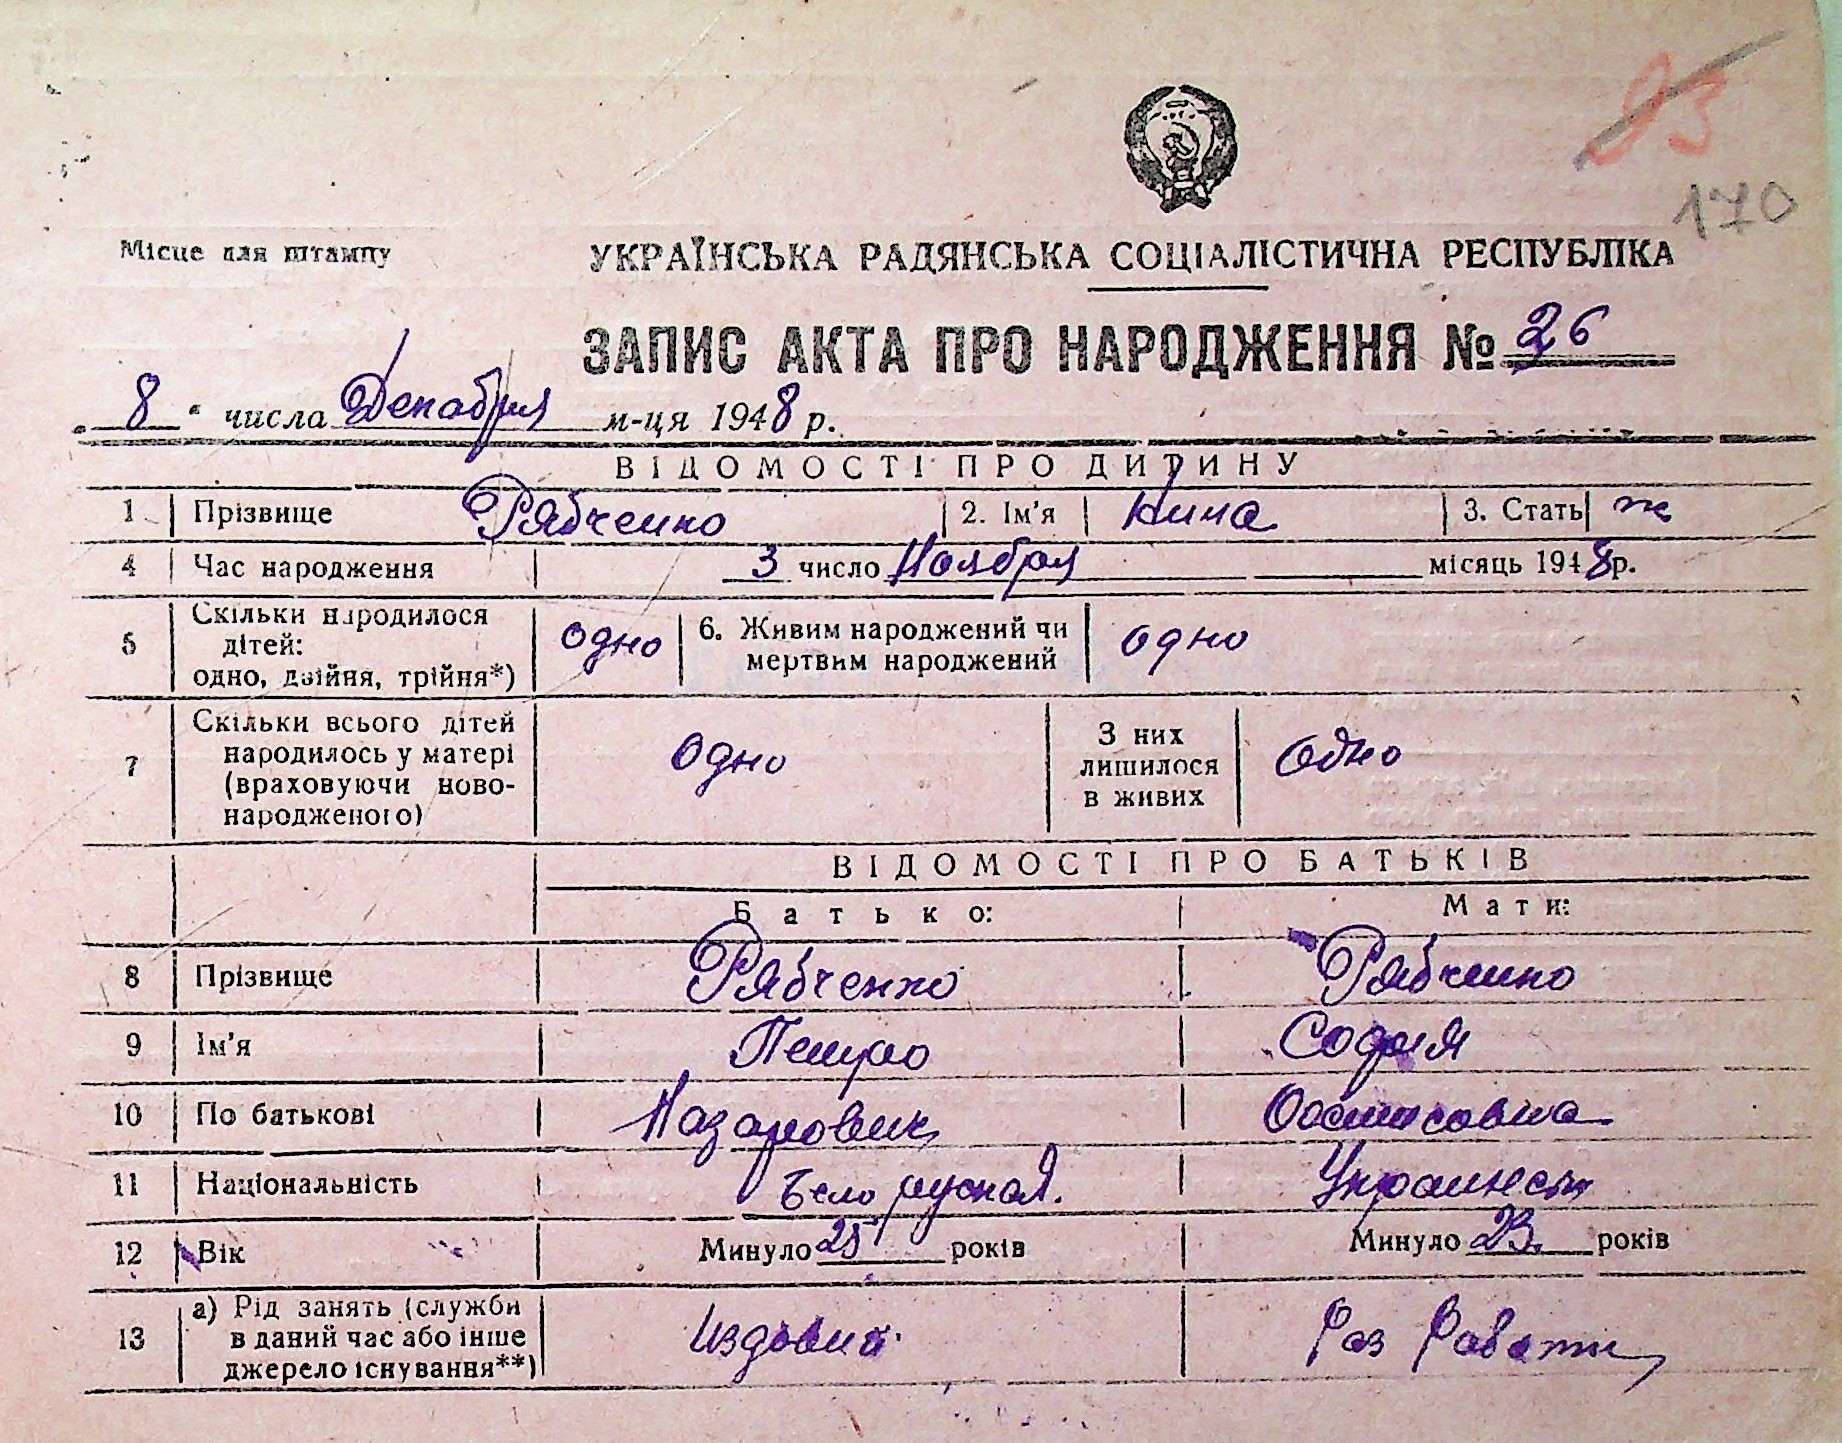 93
170
Місце для штампу
УКРАЇНСЬКА РАДЯНСЬКА СОЦІАЛІСТИЧНА РЕСПУБЛІКА
ЗАПИС АКТА ПРО НАРОДЖЕННЯ № 26
„ 8 “ числа Декабря м-ця 1948 р.
ВІДОМОСТІ ПРО ДИТИНУ
1 Прізвище Рябченко 2. Ім'я Нина 3. Стать ж
4 Час народження 3 число Ноября місяць 1948 р.
5 Скільки народилося дітей: одно, двійня, трійня*) одно 6. Живим народжений чи мертвим народжений одно
7 Скільки всього дітей народилось у матері (враховуючи новонародженого) одно З них лишилося в живих одно
ВІДОМОСТІ ПРО БАТЬКІВ
Батько: Мати:
8 Прізвище Рябченко Рябченко
9 Ім'я Петро София
10 По батькові Назарович
11 Національність Белоруская. Украинск
12 Вік Минуло 25 років Минуло 23 років
13 а) Рід занять (служби в даний час або інше джерело існування**) Издовий Раз Работи